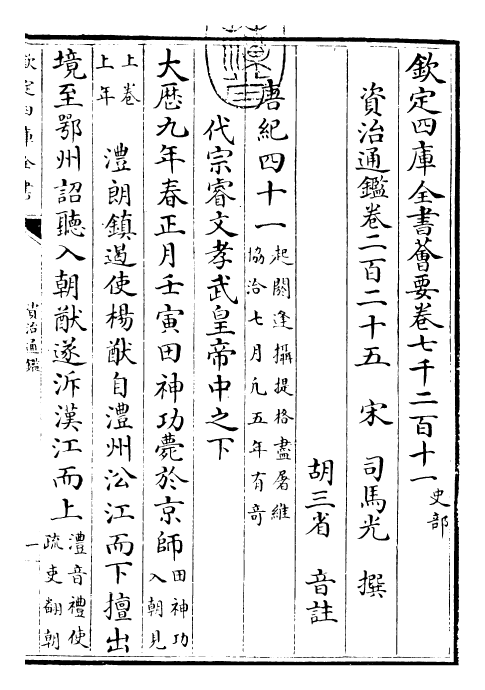 欽定四庫全書薈要卷七千二百十一史部
資治通鑑卷二百二十五 宋 司馬光 撰
胡三省 音註
唐紀四十一起閼逢攝提格盡屠維
協洽七月凡五年有奇
代宗睿文孝武皇帝中之下
大厯九年春正月壬寅田神功薨於京師田神功
入朝見
上卷
上年 澧朗鎮遏使楊猷自澧州沿江而下擅出
境至鄂州詔聽入朝猷遂泝漢江而上澧音禮使
疏吏翻朝
欽定四庫全書
資治通鑑
一